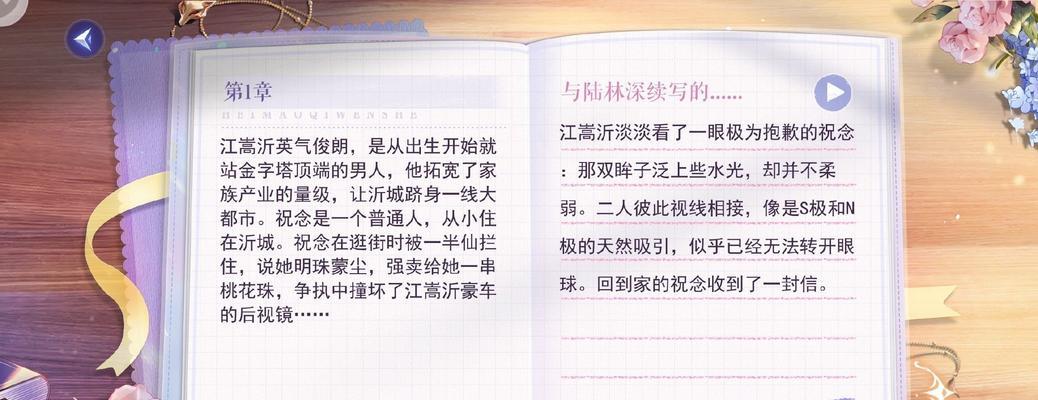 第1章
HEIMAOQIWENSHE
江嵩沂英气俊朗，是从出生开始就
站金字塔顶端的男人，他拓宽了家
族产业的量级，让沂城跻身一线大
都市。祝念是一个普通人，从小住
在沂城。祝念在逛街时被一半仙拦
住，说她明珠蒙尘，强卖给她一串
桃花珠，争执中撞坏了江嵩沂豪车
的后视镜……
与陆林深续写的……
江嵩沂淡淡看了一眼极为抱歉的祝念
：那双眸子泛上些水光，却并不柔
弱。二人彼此视线相接，像是S极和N
极的天然吸引，似乎已经无法转开眼
球。回到家的祝念收到了一封信。